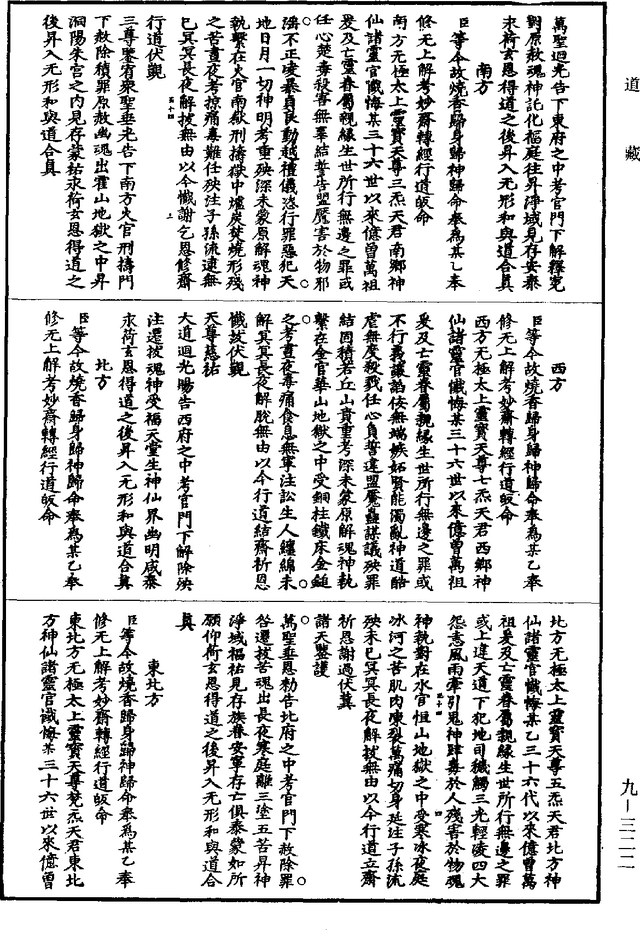 道藏
萬聖迴光告下東府之中考官門下解釋冤
對原赦魂神託化福庭往昇淨域見存安泰
永荷玄恩得道之後昇入无形和與道合真
南方
臣等今故燒香歸身歸神歸命奉為某乙奉
修无上解考妙齋轉經行道皈命
南方无極太上靈寶天尊三炁天君南鄉神
仙諸靈官懺悔某三十六世以來億曾萬祖
爰及亡靈眷屬親緣生世所行無邊之罪或
任心楚毒殺害無辜結誓告盟魘害於物邪
滛不正凌暴貞良動越禮儀恣行罪惡犯天
地日月一切神明考重殃深未蒙原解魂神
執繫在火官南嶽刑擣獄中爐炭焚燒形殘
之苦晝夜考掠痛毒難任殃注子孫流逮無
已冥冥長夜解拔無由以今懺謝乞恩修齋
行道伏覬
三尊鑒宥衆聖垂光告下南方火官刑擣門
下赦除積罪原赦幽魂出霍山地獄之中昇
洞陽朱宮之內見存蒙祐永荷玄恩得道之
後昇入无形和與道合真
西方
臣等今故燒香歸身歸神歸命奉為某乙奉
修无上解考妙齋轉經行道皈命
西方无極太上靈寶天尊七炁天君西鄉神
仙諸靈官懺悔某三十六世以來億曾萬祖
爰及亡靈眷屬親緣生世所行無邊之罪或
不行義讓諂佞無端嫉妬賢能濁亂神道酷
虐無度殺戮任心負誓違盟魘蠱謀議殃罪
結固積若丘山責重考深未蒙原解魂神執
繫在金官華山地獄之中受銅柱鐵床金鎚
之考晝夜毒痛食息無寧注訟生人纏綿未
解冥冥長夜解脫無由以今行道結齋祈恩
懺故伏覬
天尊慈祐
大道迴光賜告西府之中考官門下解除殃
注還拔魂神受福天堂生神仙界幽明咸泰
永荷玄恩得道之後昇入无形和與道合真
北方
臣等今故燒香歸身歸神歸命奉為某乙奉
修无上解考妙齋轉經行道皈命
北方无極太上靈寶天尊五炁天君北方神
仙諸靈官懺悔某乙三十六代以來億曾萬
祖爰及亡靈眷屬親緣生世所行無邊之罪
或上違天道下犯地司穢觸三光輕凌四大
怨恚風雨牽引鬼神肆毒於人殘害於物魂
神執對在水官恒山地獄之中受寒冰夜庭
冰河之苦肌肉凍裂萬痛切身延注子孫流
殃未已冥冥長夜解拔無由以今行道立齋
祈恩謝過伏冀
諸天鑒護
萬聖垂恩勑告北府之中考官門下赦除罪
咎還拔苦魂出長夜寒庭離三塗五苦昇神
淨域福祐見存族眷安寧存亡俱泰蒙如所
願仰荷玄恩得道之後昇入无形和與道合
真
東北方
臣等今故燒香歸身歸神歸命奉為某乙奉
修无上解考妙齋轉經行道皈命
東北方无極太上靈寶天尊梵炁天君東北
方神仙諸靈官懺悔某三十六世以來億曾
九－三二二